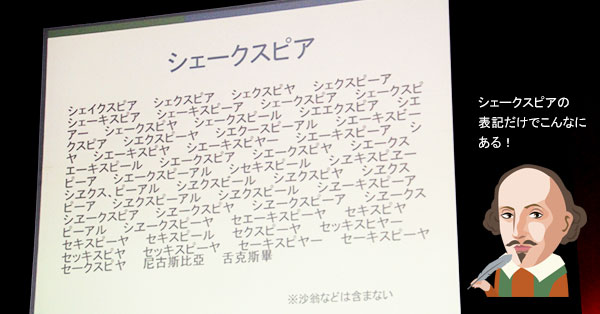 シェークスピア
シェイクスピア　シェクスピア　シェクスピヤ　シェクスピーア
シェーキスピア　シェーキスピーア　シェークスピア　シェークスピ
アー　シェークスピヤ　シェークスピール　シエエクスピア　シエ
クスピア　シエクスピーヤ　シエクースピーアル　シエーキスピー
ヤ　シエーキスピヤ　シエーキスピヤー　シエーキスピーア　シ
エーキスピール　シエークスピア　シエークスピヤ　シエークス
ピーア　シエークスピーアル　シセキスピール　シヱキスピヱー
シヱクス、ピーアル　シヱクスピール　シヱクスピヤ　シヱクス
ピーア　シヱクスピーアル　シヱクスピール　シヱーキスピーア
シヱークスピア　シヱークスピヤ　シヱークスピーア　シヱークス
ピーアル　シヱークスピーヤ　セエーキスピーヤ　セキスピヤ
セキスピーヤ　セキスピール　セクスピーヤ　セッキスヒヤー
セッキスピヤ　セッキスピーヤ　セーキスピヤー　セーキスピーヤ
セークスピヤ　尼古斯比亞　舌克斯畢
※沙翁などは含まない
シェークスピアの
表記だけでこんなに
ある！